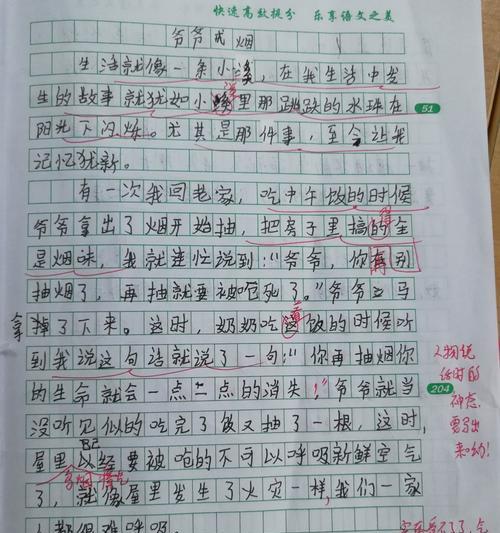 快速高效提分 乐享语文之美
爷爷戒烟
生活就像一条小溪,在我生活中发
生的故事就犹如小溪里那跳跃的水珠在
51
阳光下闪烁。尤其是那件事,至今让我
记忆犹新。
有一次我回老家,吃中午饭的时候
爷爷拿出了烟开始抽,把房子里搞的全
得
是烟味,我就连忙说到:“爷爷,你再别
抽烟了,再抽就要被呛死了。”爷爷立马
拿掉了下来。这时,奶奶吃饭的时候听
到我说这句话就说了一句:“你再抽烟你
的生命就会一点一点的消失!”爷爷就当
204
没听见似的吃完了饭又抽了一根,这时,
屋里以经要被呛的不可以呼吸新鲜空气
了,就像屋里发生了火灾一样,我们一家
人都很难呼吸。
人物说
话时的
神态
要写出
来哟!